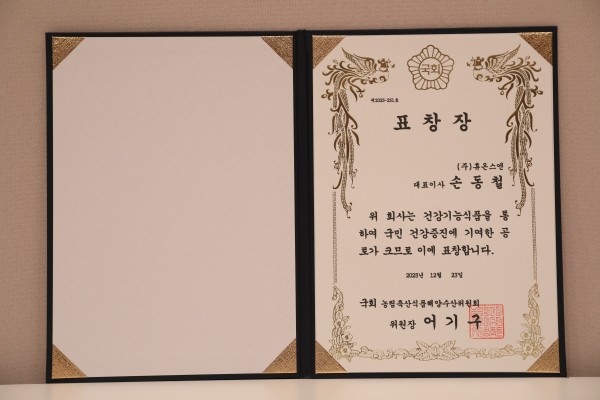 국회
제2025-221호
표창장
(주)휴온스엔
대표이사 손동철
위 회사는 건강기능식품을 통
하여 국민 건강증진에 기여한 공
로가 크므로 이에 표창합니다.
2025년 12월 23일
국회 농림축산식품해양수산위원회
위원장 어기구